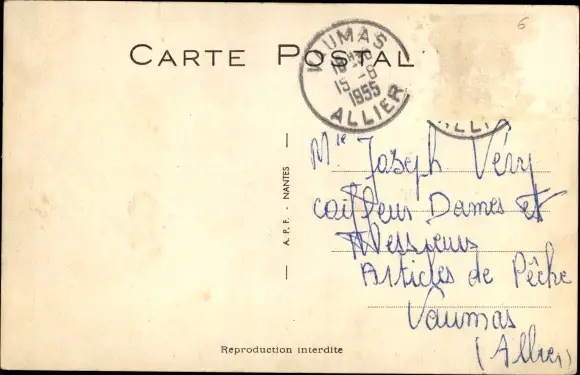 6
CARTE POSTALE
VAUMAS
18 H
15 -6
1955
ALLIER
ALLIER
A. P. F. - NANTES
Mr Joseph Véry
coiffeur Dames et
Messieurs
Articles de Pêche
Vaumas
(Allier)
Reproduction interdite